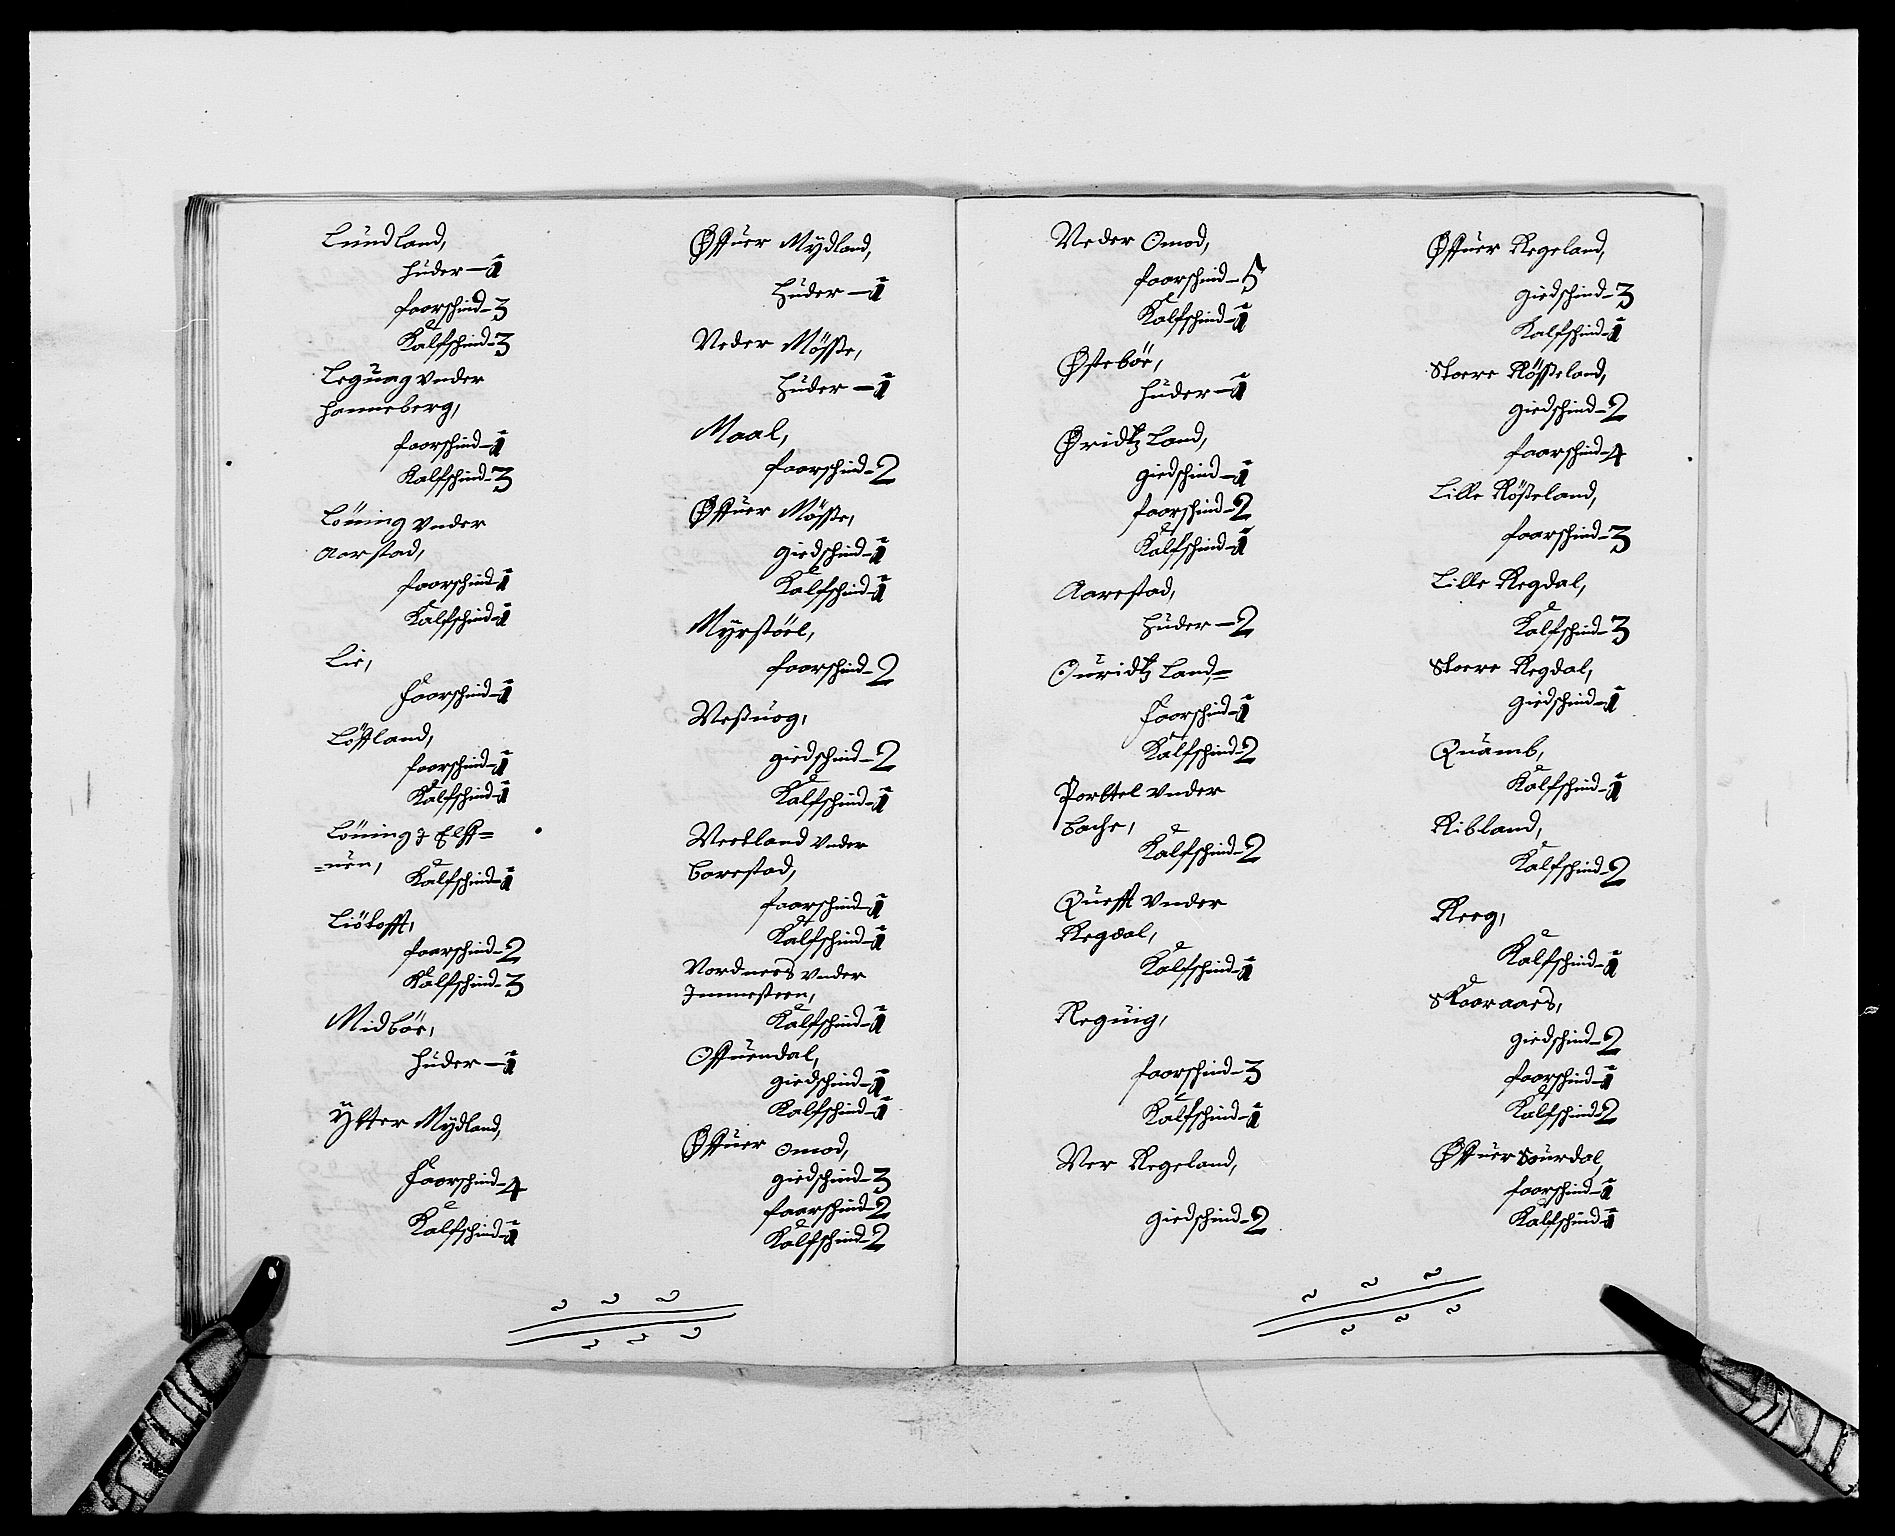 Lundland,
Huder — 1
faarschind - 3
Kalfschind - 3
Leguag vnder
Hanneberg,
faarschind - 1
Kalfschind - 3
Löuing vnder
Aarstad,
faarschind - 1
Kalfschind - 1
Lie,
Faarschind - 1
Löffland,
faarschind - 1
Kalfschind - 1
Löuing j Elff=
=uen,
Kalfschind - 1
Liötofft,
faarschind - 2
Kalfschind - 3
Midböe,
Huder — 1
Ytter Mydland,
Faarschind - 4
Kalfschind - 1
Øffuer Mydland,
Huder — 1
Neder Mösse,
Huder — 1
Maal,
faarschind - 2
Øffuer Mösse,
giedschind - 1
Kalfschind - 1
Myrstöel,
faarschind - 2
Neßuog,
giedschind - 2
Kalfschind - 1
Neetland vnder
Barestad,
faarschind - 1
Kalfschind - 1
Nordnees vnder
Immesteen,
Kalfschind - 1
Offuendal,
giedschind - 1
Kalfschind - 1
Øffuer Omod,
giedschind - 3
faarschind - 2
Kalfschind - 2
Neder Omod,
faarschind - 5
Kalfschind - 1
Østeböe,
Huder — 1
Øridtz Land,
giedschind - 1
faarschind - 2
Kalfschind - 1
Aarestad,
Huder — 2
Ouridtz Land,=
Faarschind - 1
Kalfschind - 2
Porttel vnder
Bache,
Kalfschind - 2
Quefft vnder
Regdal,
Kalfschind - 1
Reguig,
faarschind - 3
Kalfschind - 1
Ner Regeland,
Giedschind - 2
Øffuer Regeland,
Giedschind - 3
Kalfschind - 1
Stoere Rösseland,
Giedschind - 2
faarschind - 4
Lille Rößeland,
faarschind - 3
Lille Regdal,
Kalfschind - 3
Stoere Regdal,
Giedschind - 1
Quamb,
Kalfschind - 1
Ribland,
Kalfschind - 2
Reeg,
Kalfschind - 1
Skaaraaes,
Giedschind - 2
faarschind - 1
Kalfschind - 2
Øffuer Suurdal,
faarschind - 1
Kalfschind - 1